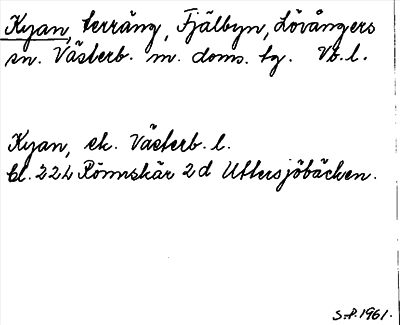 Kyan, terräng, Fjälbyn, Lövångers
sn. Västerb. m. doms. tg. Vb. l.
Kyan, ek. Västerb. l.
bl. 224 Rönnskär 2d Uttersjöbäcken.
S.P. 1961.